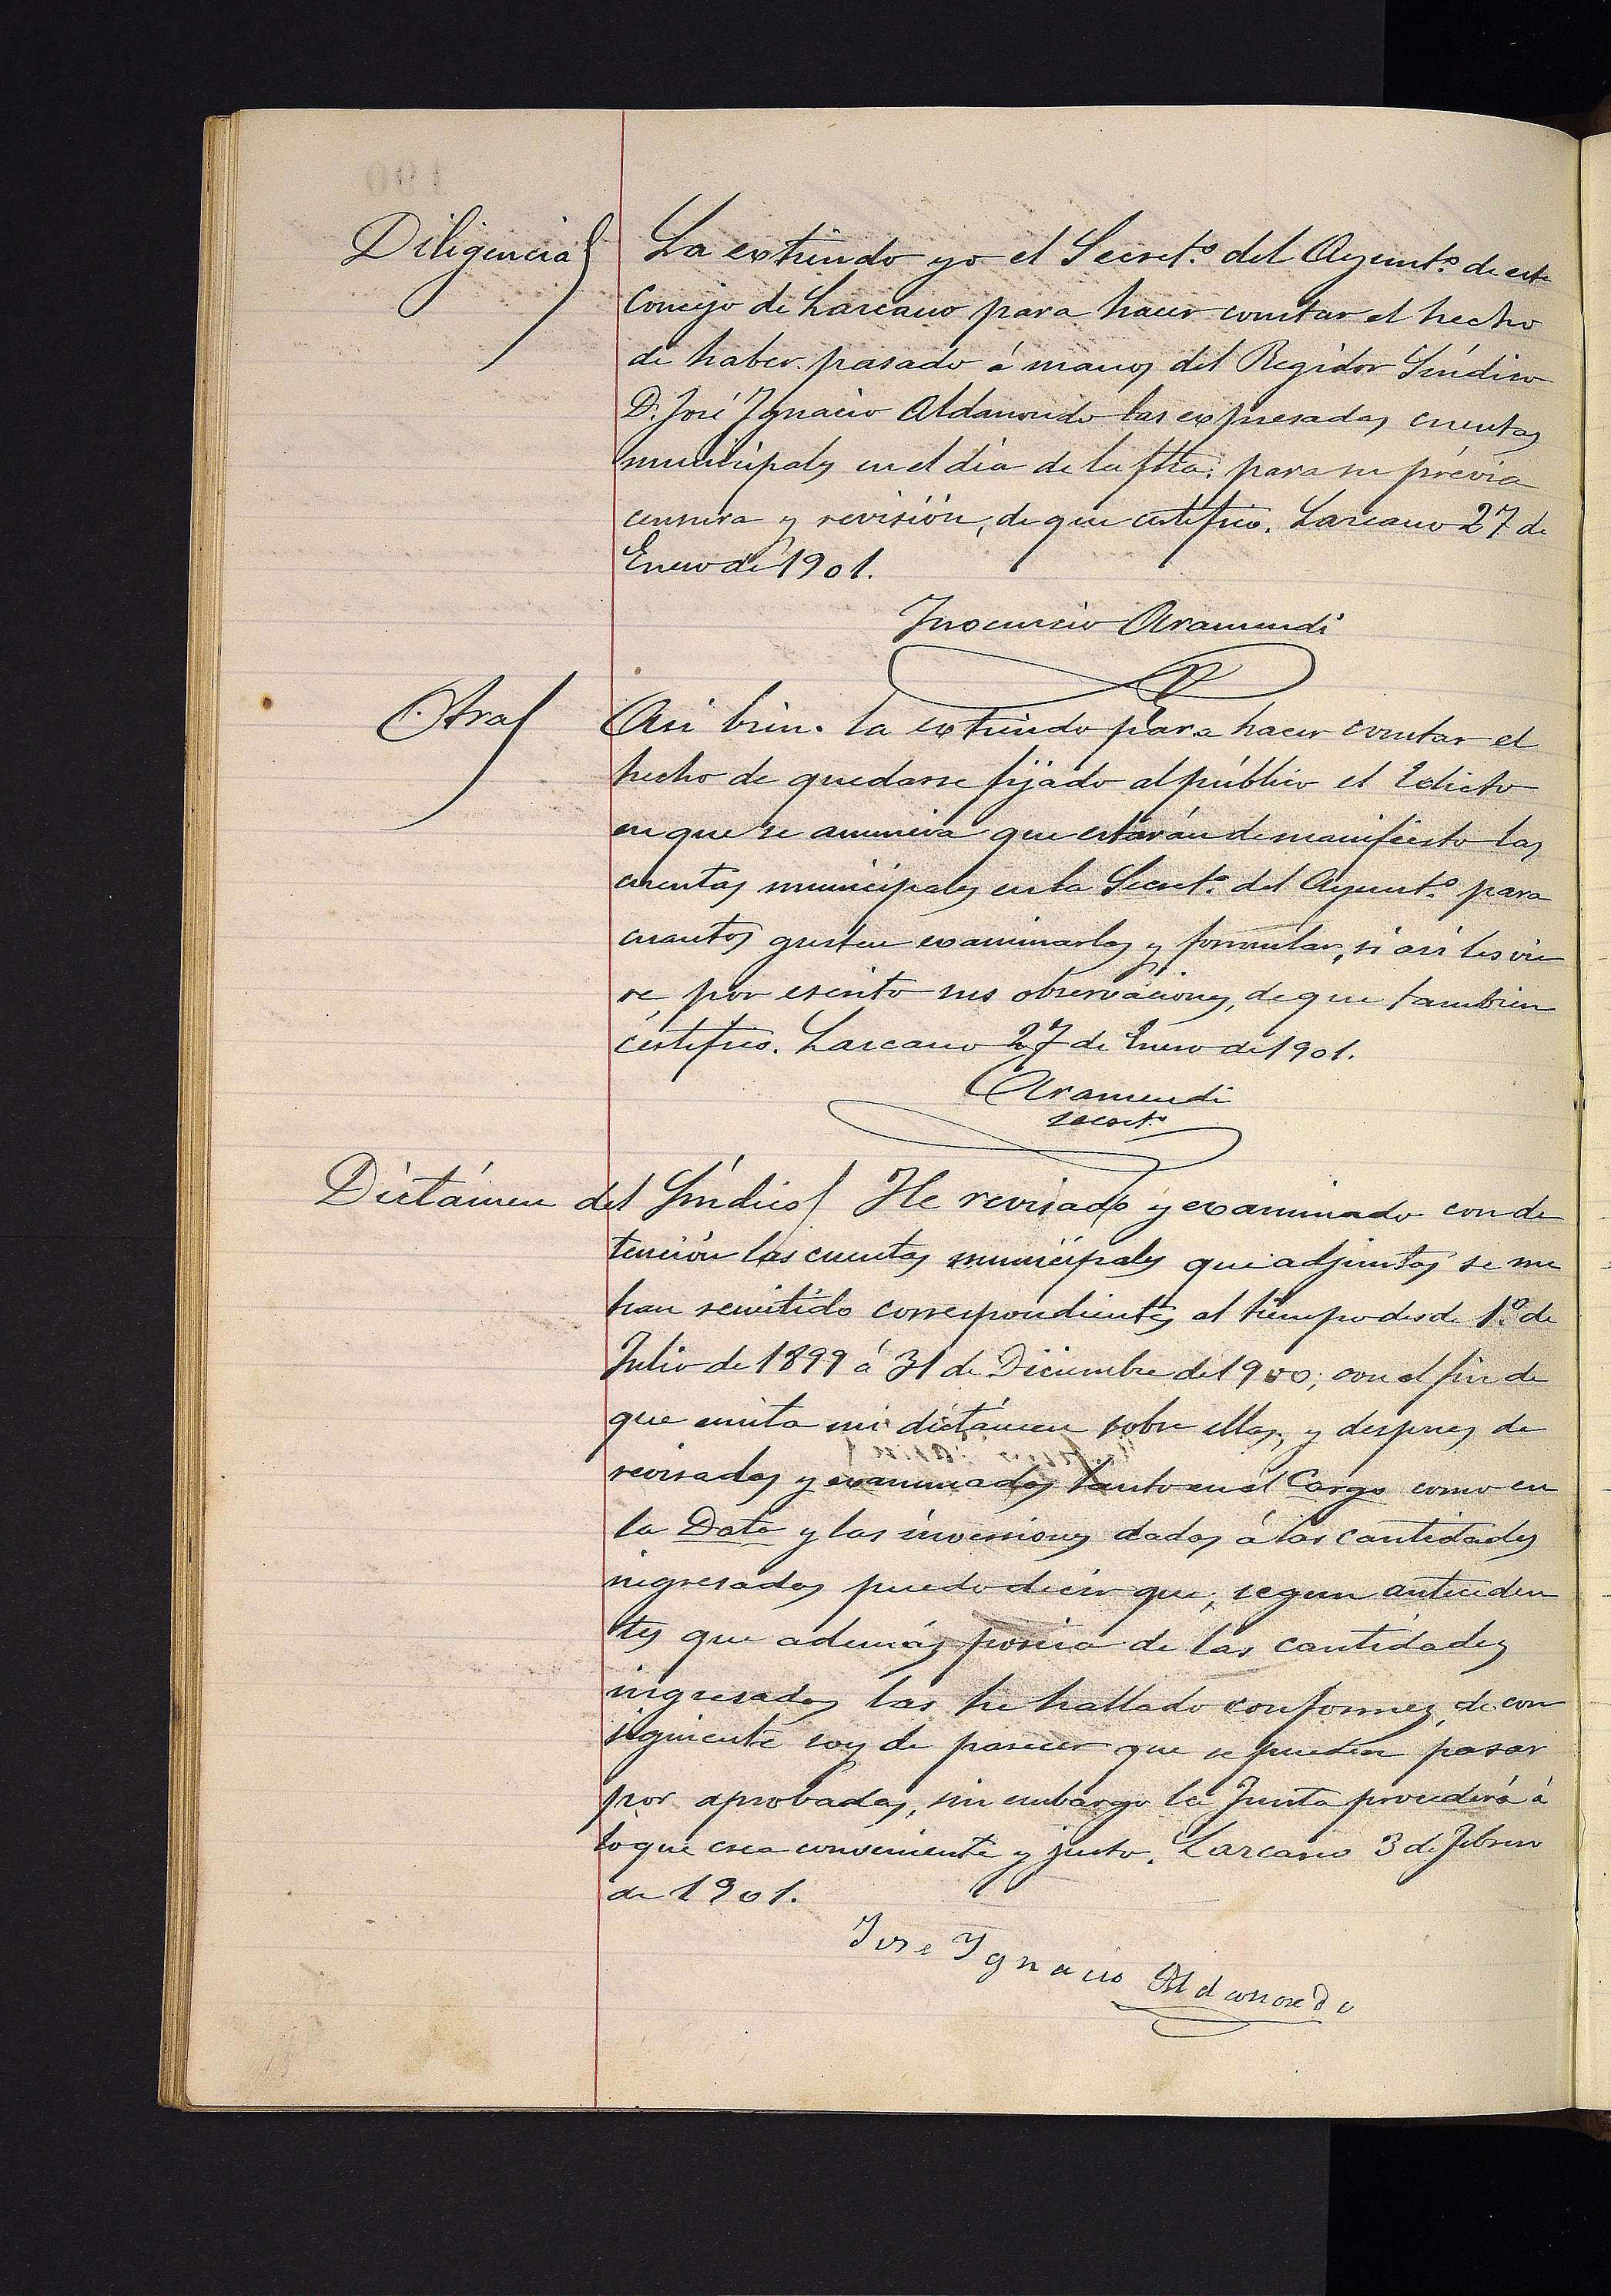 Diligencia La extiendo yo el Secret.º del Ayunt.º de este
Concejo de Lazcano para hacer constar el hecho
de haber pasado á manos del Regidor Síndico
D. José Ygnacio Aldamondo las expresadas cuentas
municipales en el día de la fha. para su prévia
censura y revisión, de que certifico. Lazcano 27 de
Enero de 1901.
Inocencio Aramendi
Otra Asi bien la extiendo para hacer constar el
hecho de quedarse fijado al público el Edicto
en que se anuncia que estarán de manifiesto las
cuentas municipales en la Secret.ª del Ayunt.º para
cuantos gusten examinarlas y formular, si asi les
por escrito sus observaciones, de que tambien
certifico. Lazcano 27 de Enero de 1901.
Aramendi
Secret.º
Dictámen del Síndico He revisado y examinado con de
tención las cuentas municipales que adjuntas se me
han remitido correspondientes al tiempo desde 1.º de
Julio de 1899 á 31 de Diciembre de 1900; con el fin de
que emita mi dictámen sobre ellas, y despues de
revisadas y examinadas tanto en el Cargo como en
la Data y las inversiones dadas á las cantidades
ingresadas puedo decir que, segun anteceden
tes que además poseia de las cantidades
ingresadas las he hallado conformes, de con
siguiente soy de parecer que se pueden pasar
por aprobadas, sin embargo la Junta procederá á
lo que crea conveniente y justo. Lazcano 3 de Febrero
de 1901.
Jose Ygnacio Aldamondo